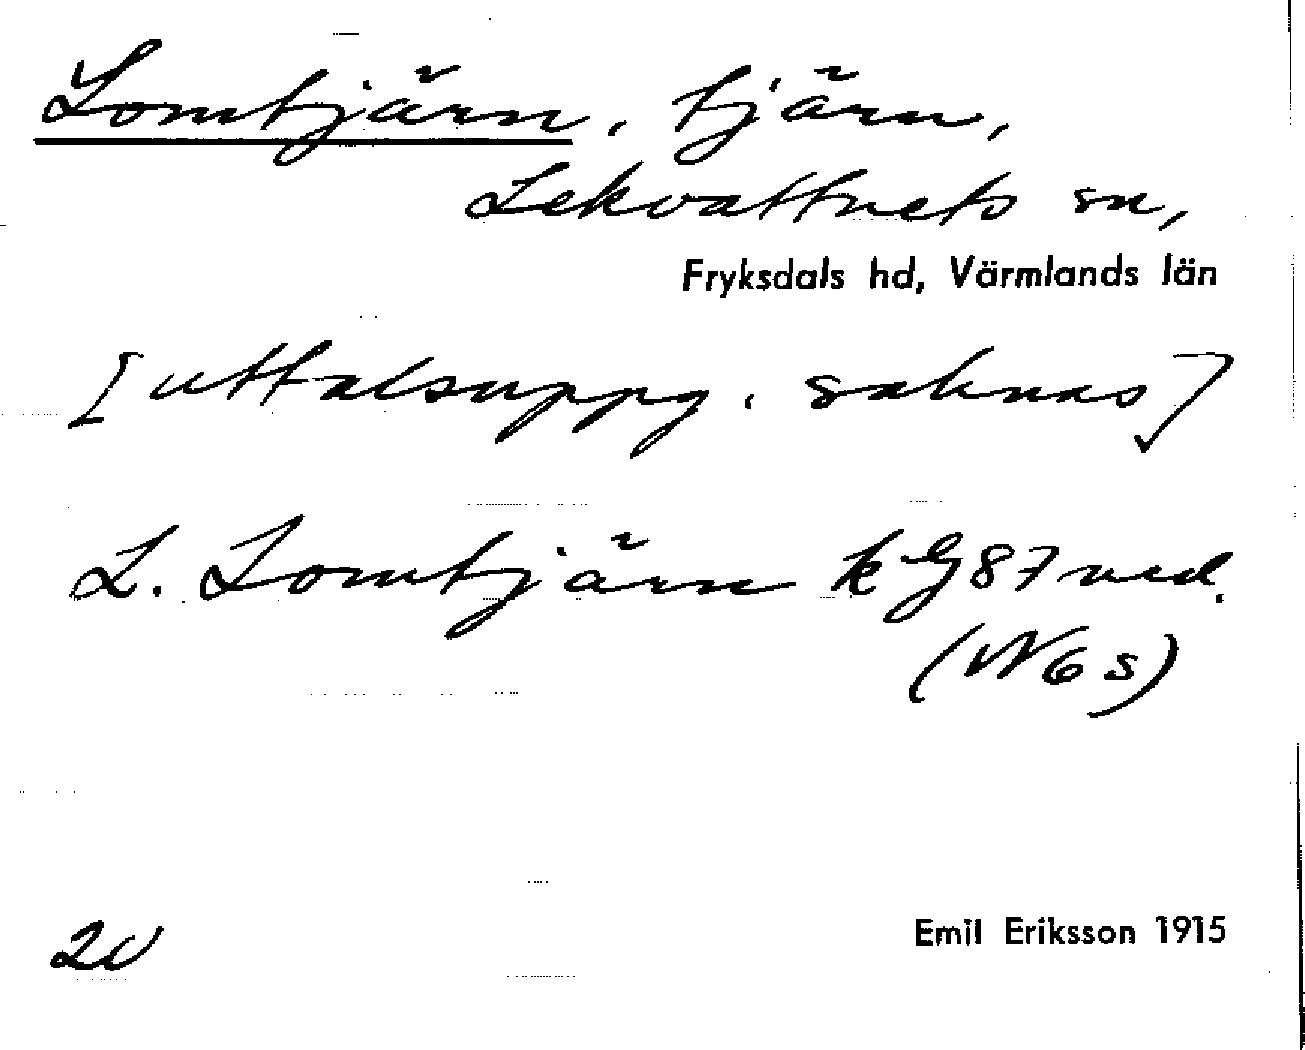 Lomtjärn, tjärn,
Lekvattnets sn,
Fryksdals hd, Värmlands län
[uttalsuppg. saknas]
L. Lomtjärn k G 87 ned.
(N 6 s)
Emil Eriksson 1915